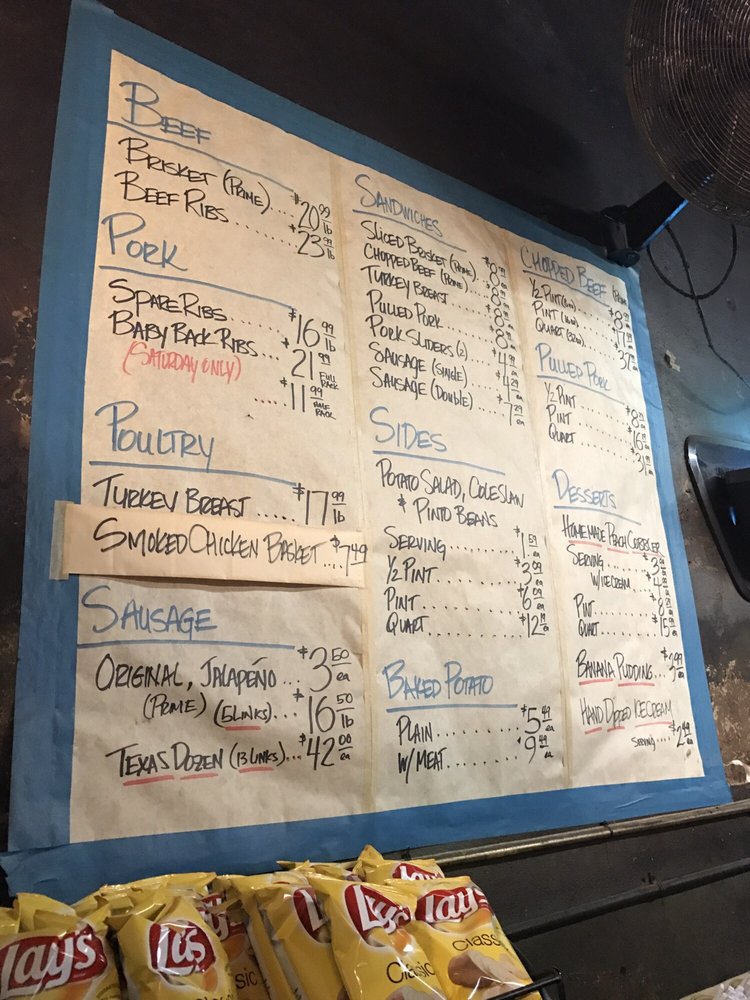 BEEF
BRISKET (PRIME).... $20 99 lb
BEEF RIBS ...... $23 99 lb
PORK
SPARE RIBS ........ $16 99 lb
BABY BACK RIBS .... $21 99 FULL RACK
(SATURDAY ONLY)
..... $11 99 HALF RACK
POULTRY
TURKEY BREAST ..... $17 99 lb
SMOKED CHICKEN BASKET ... $7.49
SAUSAGE
ORIGINAL, JALAPEÑO ... $3 50 ea
(PRIME) (5 LINKS)... $16 50 lb
TEXAS DOZEN (13 LINKS)... $42 00 ea
SANDWICHES
SLICED BRISKET (PRIME)
CHOPPED BEEF (PRIME)
TURKEY BREAST
PULLED PORK
PORK SLIDERS (2)
SAUSAGE (SINGLE) $4 29 ea
SAUSAGE (DOUBLE) $7 29 ea
SIDES
POTATO SALAD, COLESLAW
& PINTO BEANS
SERVING .......... $1 59 ea
1/2 PINT ............ $3 09 ea
PINT ............... $6 09 ea
QUART ............. $12 19 ea
BAKED POTATO
PLAIN ............. $5 49 ea
W/ MEAT .......... $9 49 ea
CHOPPED BEEF
1/2 PINT
PINT
QUART
PULLED PORK
1/2 PINT
PINT
QUART
DESSERTS
HOMEMADE PEACH COBBLER
SERVING
W/ ICECREAM
PINT
QUART
BANANA PUDDING... $3 99 ea
HAND DIPPED ICECREAM
SERVING .... $2 49 ea
Lay's
Lay's
Lay's
Classic
Lay's
Classic